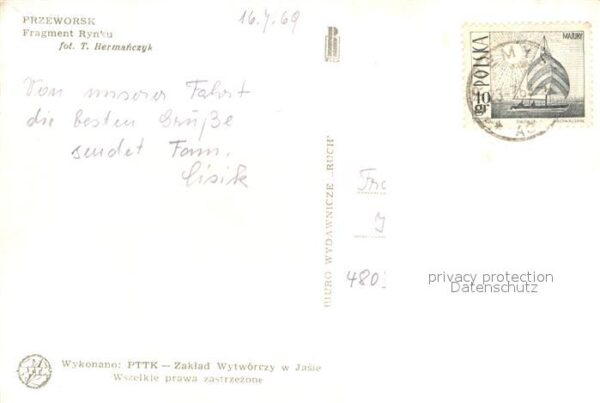 PRZEWORSK
Fragment Rynku
fot. T. Hermańczyk
16.7.69
Von unserer Fahrt
die besten Grüße
sendet Fam.
Cisik
BIURO WYDAWNICZE „RUCH"
POLSKA
MAZURY
10 gr
Fr
480
privacy protection
Datenschutz
Wykonano: PTTK — Zakład Wytwórczy w Jaśle
Wszelkie prawa zastrzeżone